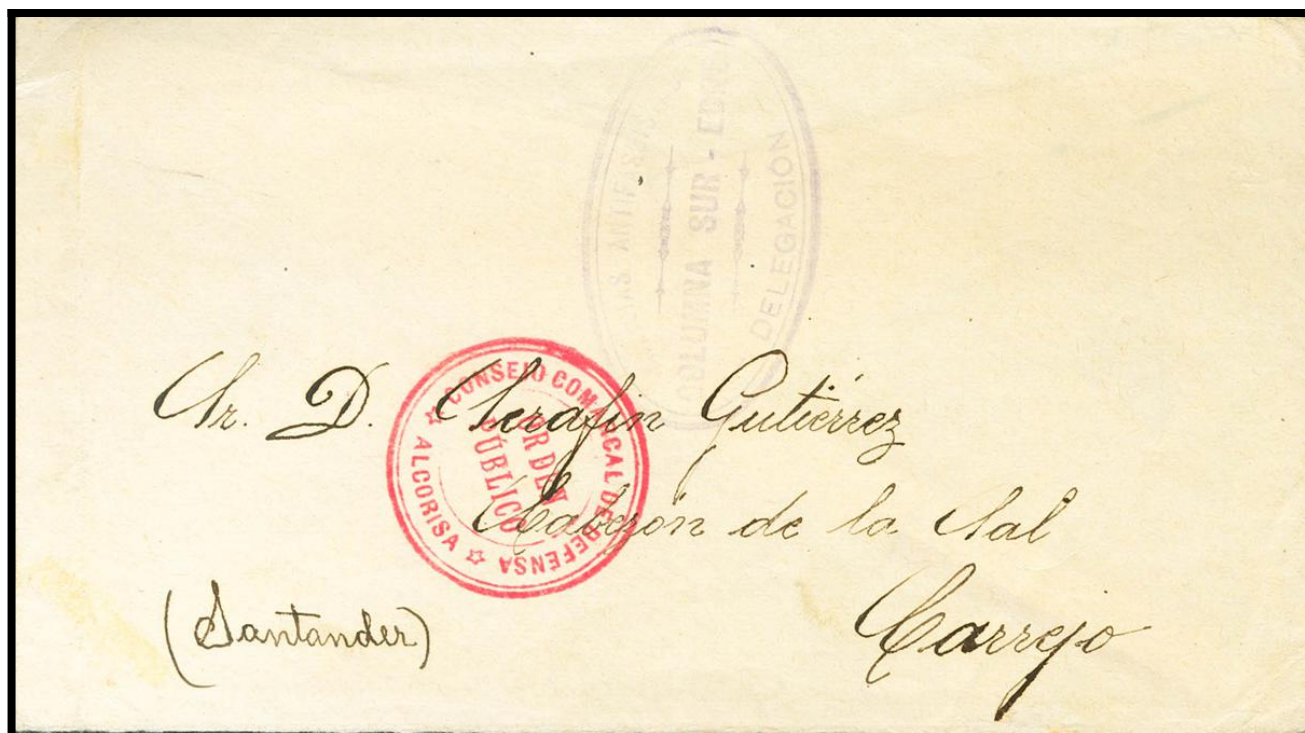 COLUMNA SUR - EBRO
DELEGACION
CONSEJO COMARCAL DE DEFENSA
ORDEN
PÚBLICO
ALCORISA
Sr. D. Serafin Gutiérrez
Cabezón de la Sal
(Santander)
Carrejo